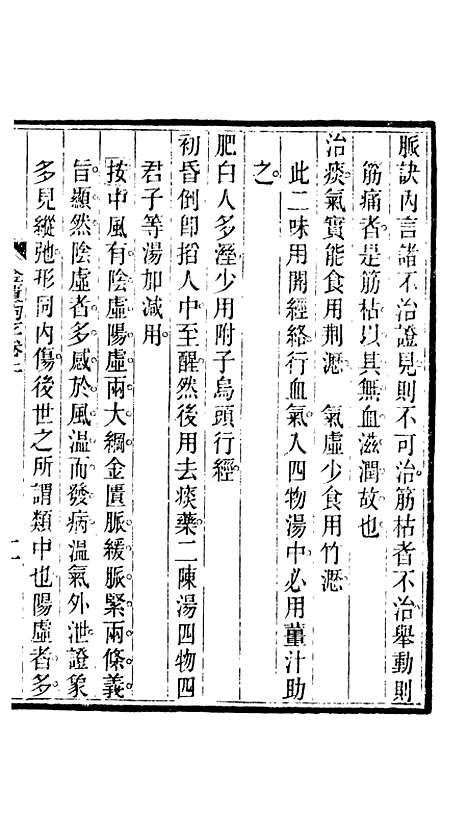 脈訣內言諸不治證見則不可治筋枯者不治舉動則
筋痛者是筋枯以其無血滋潤故也
治痰氣實能食用荆瀝　氣虛少食用竹瀝
此二味用開經絡行血氣入四物湯中必用薑汁助
之
肥白人多溼少用附子烏頭行經
初昏倒卽掐人中至醒然後用去痰藥二陳湯四物四
君子等湯加減用
按中風有陰虛陽虛兩大綱金匱脈緩脈緊兩條義
旨顯然陰虛者多感於風溫而發病溫氣外泄證象
多見縱弛形同內傷後世之所謂類中也陽虛者多